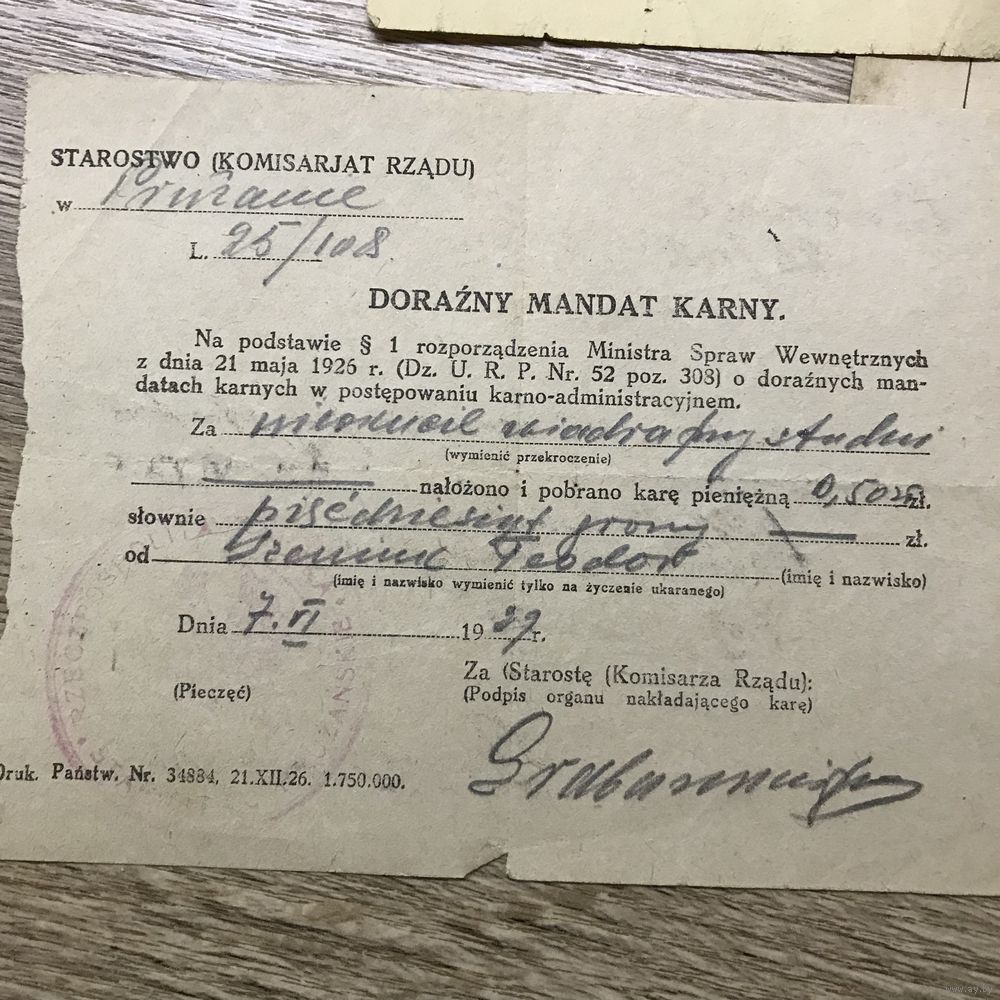 STAROSTWO (KOMISARJAT RZĄDU)
w Prużanie
L. 25/108
DORAŹNY MANDAT KARNY.
Na podstawie § 1 rozporządzenia Ministra Spraw Wewnętrznych
z dnia 21 maja 1926 r. (Dz. U. R. P. Nr. 52 poz. 308) o doraźnych man-
datach karnych w postępowaniu karno-administracyjnem.
Za wiadra przy studni
(wymienić przekroczenie)
nałożono i pobrano karę pieniężną 0,50 zł.
słownie pięćdziesiąt groszy zł.
od Teodor (imię i nazwisko)
(imię i nazwisko wymienić tylko na życzenie ukaranego)
Dnia 7.VI 1929 r.
Za (Starostę (Komisarza Rządu):
(Pieczęć) (Podpis organu nakładającego karę)
Druk. Państw. Nr. 34884, 21.XII.26. 1.750.000.
www.ay.by